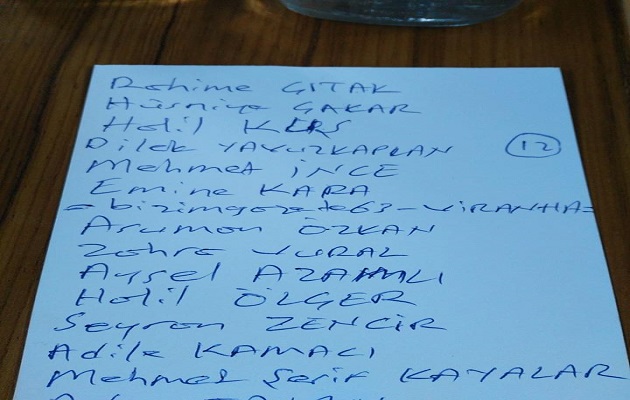 Rahime ÇITAK
Hüsniye ÇAKAR
Halil KLRS
Dilek YAVUZKAPLAN
12
Mehmet İNCE
Emine KARA
=bizimgazete63-VİRANHA=
Arumon ÖZKAN
Zahra VURAL
Aysel AZAMLI
Halil ÖLGER
Seyran ZENCİR
Adile KAMACI
Mehmet Şerif KAYALAR